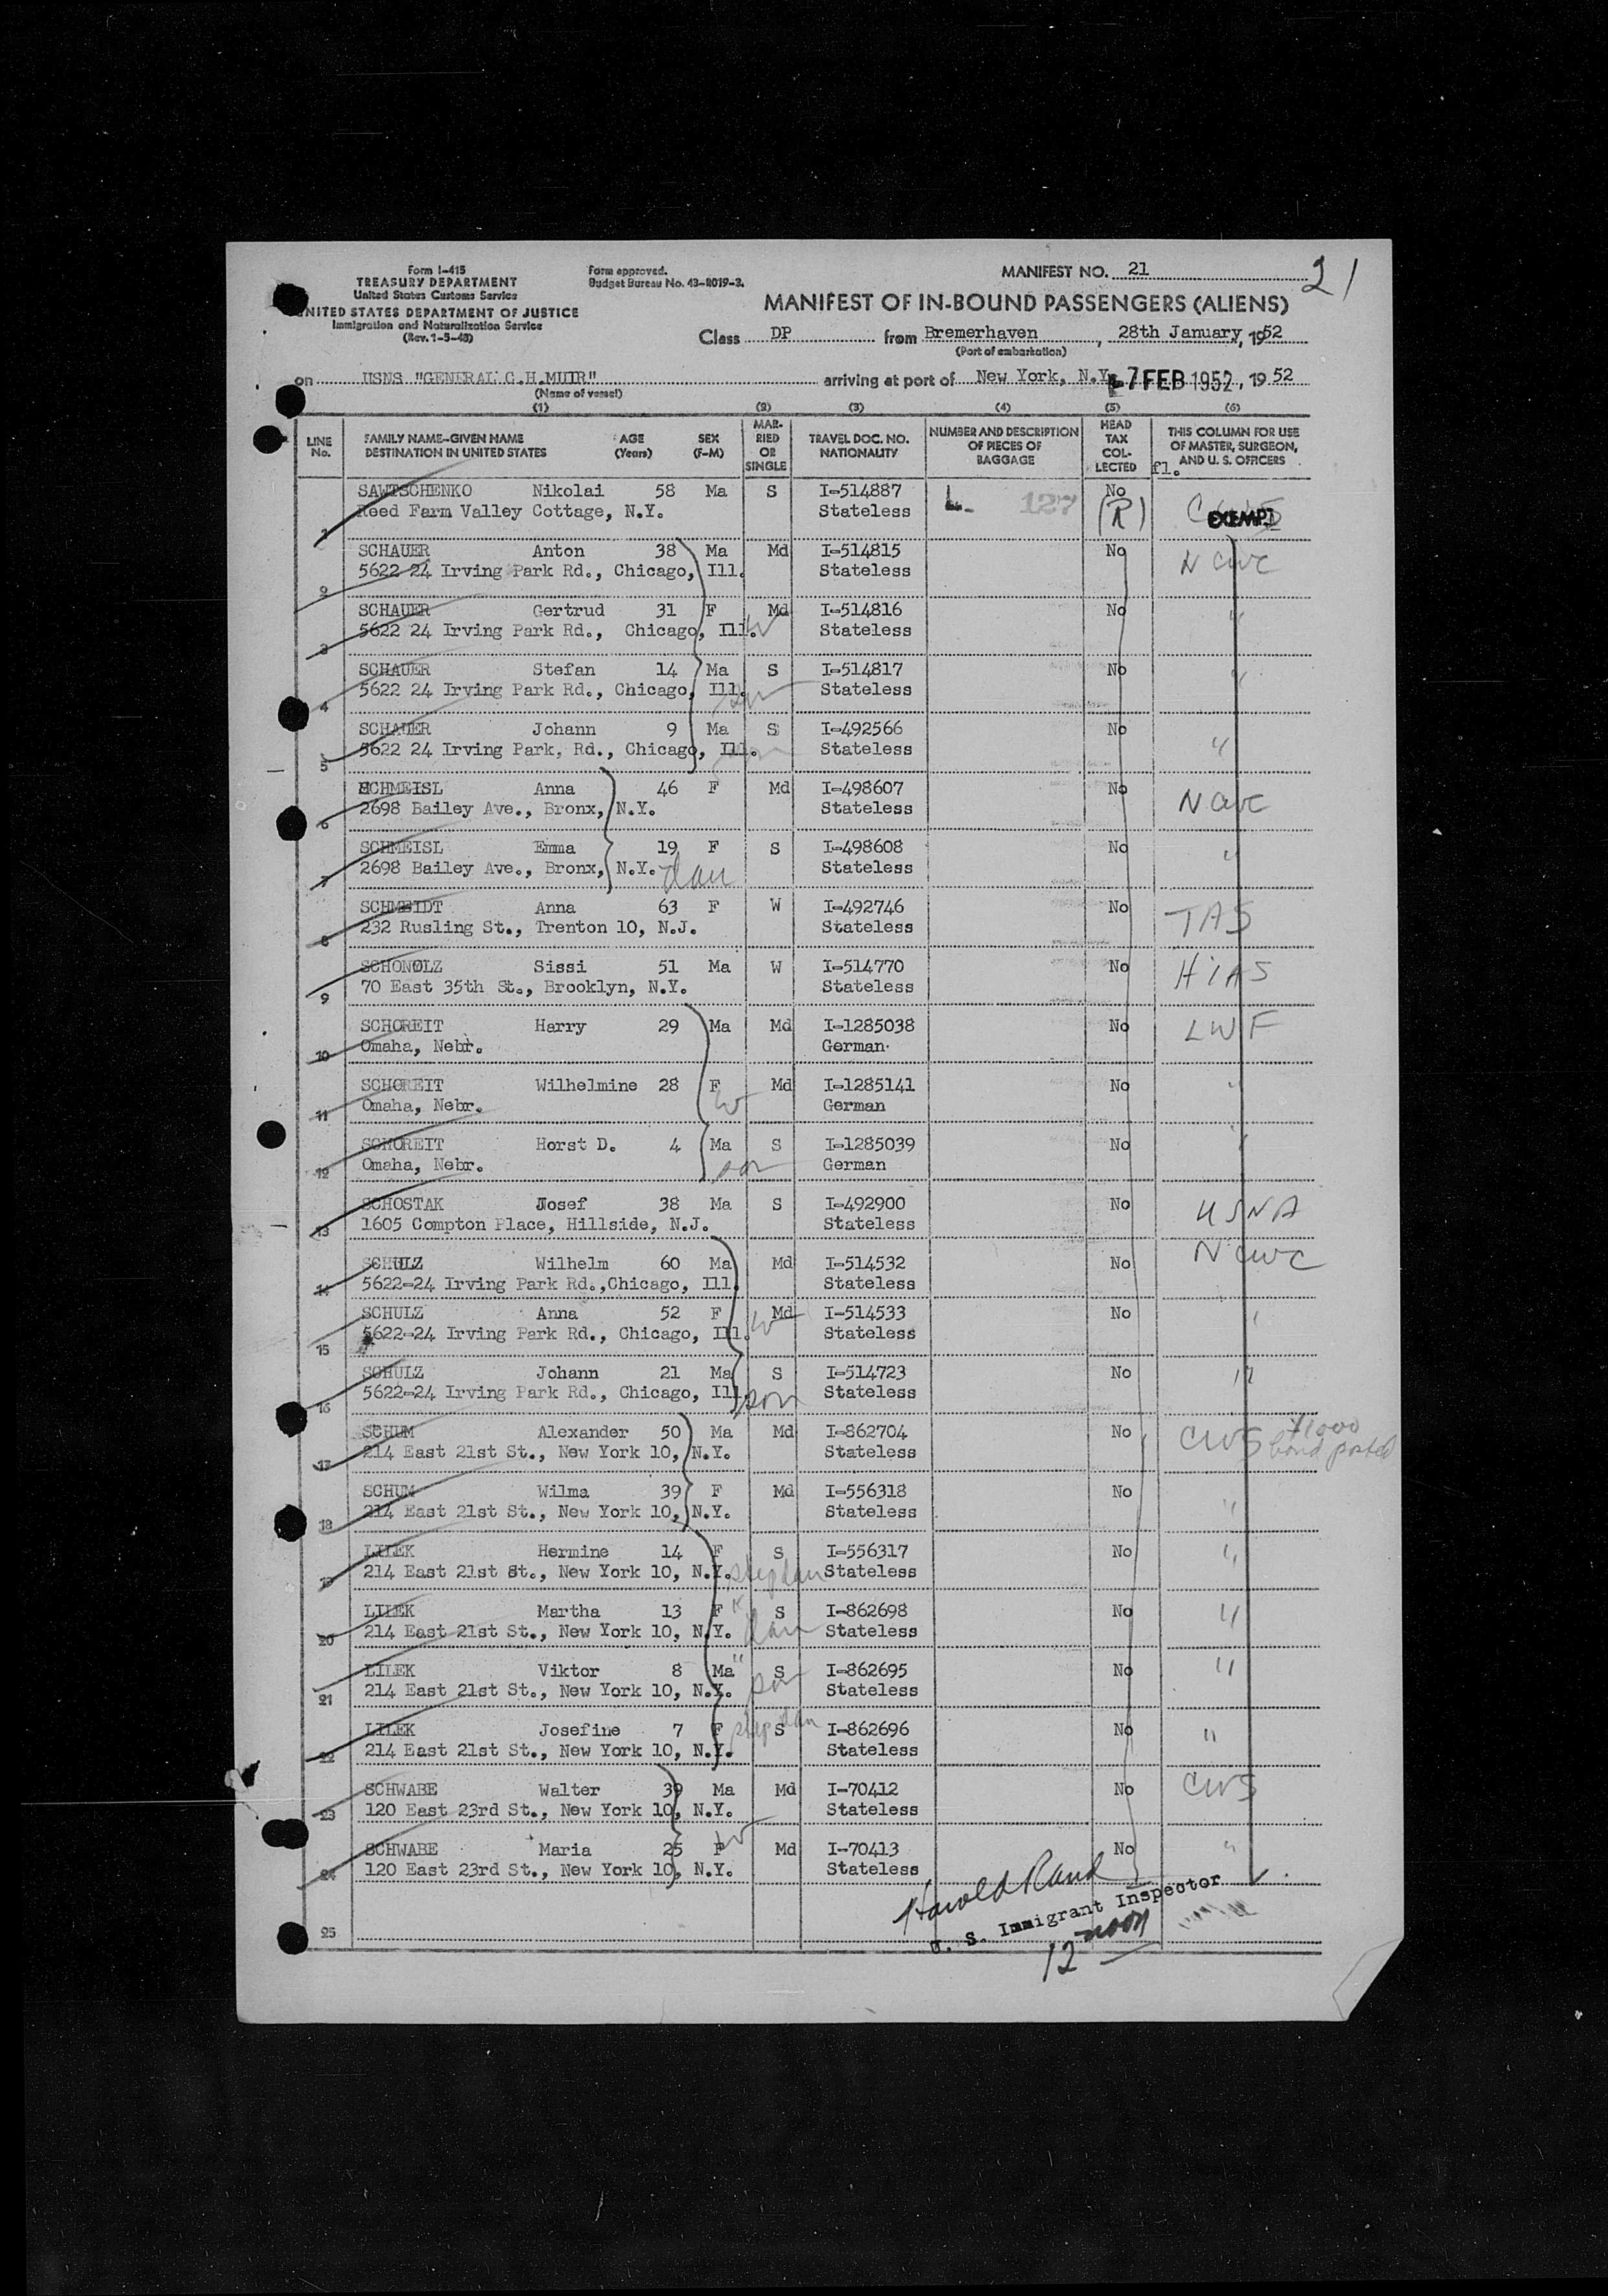 Form I-415
TREASURY DEPARTMENT
United States Customs Service
UNITED STATES DEPARTMENT OF JUSTICE
Immigration and Naturalization Service
(Rev. 1-5-48)
Form approved.
Budget Bureau No. 43-R019-3.
MANIFEST NO. 21
21
MANIFEST OF IN-BOUND PASSENGERS (ALIENS)
Class DP from Bremerhaven, 28th January, 1952
(Port of embarkation)
on USNS "GENERAL C.H.MUIR" arriving at port of New York, N.Y. 7 FEB 1952, 19 52
(Name of vessel)
(1) (2) (3) (4) (5) (6)
LINE No. FAMILY NAME-GIVEN NAME DESTINATION IN UNITED STATES AGE (Years) SEX (F-M) MARRIED OR SINGLE TRAVEL DOC. NO. NATIONALITY NUMBER AND DESCRIPTION OF PIECES OF BAGGAGE HEAD TAX COLLECTED THIS COLUMN FOR USE OF MASTER, SURGEON, AND U. S. OFFICERS
fl.
SAWTSCHENKO Nikolai 58 Ma S I-514887 L 127 No
Reed Farm Valley Cottage, N.Y. Stateless (R) EXEMPT
2 SCHAUER Anton 38 Ma Md I-514815 No NCWC
5622 24 Irving Park Rd., Chicago, Ill. Stateless
3 SCHAUER Gertrud 31 F Md I-514816 No "
5622 24 Irving Park Rd., Chicago, Ill. W Stateless
4 SCHAUER Stefan 14 Ma S I-514817 No "
5622 24 Irving Park Rd., Chicago, Ill. son Stateless
5 SCHAUER Johann 9 Ma S I-492566 No "
5622 24 Irving Park, Rd., Chicago, Ill. Stateless
6 SCHMEISL Anna 46 F Md I-498607 No NCWC
2698 Bailey Ave., Bronx, N.Y. Stateless
7 SCHMEISL Emma 19 F S I-498608 No "
2698 Bailey Ave., Bronx, N.Y. dau Stateless
8 SCHMEIDT Anna 63 F W I-492746 No TAS
232 Rusling St., Trenton 10, N.J. Stateless
9 SCHONOLZ Sissi 51 Ma W I-514770 No HIAS
70 East 35th St., Brooklyn, N.Y. Stateless
10 SCHOREIT Harry 29 Ma Md I-1285038 No LWF
Omaha, Nebr. German
11 SCHOREIT Wilhelmine 28 F Md I-1285141 No "
Omaha, Nebr. W German
12 SCHOREIT Horst D. 4 Ma S I-1285039 No "
Omaha, Nebr. son German
13 SCHOSTAK Josef 38 Ma S I-492900 No USNA
1605 Compton Place, Hillside, N.J. Stateless
14 SCHULZ Wilhelm 60 Ma Md I-514532 No NCWC
5622-24 Irving Park Rd.,Chicago, Ill. Stateless
15 SCHULZ Anna 52 F Md I-514533 No "
5622-24 Irving Park Rd., Chicago, Ill. W Stateless
16 SCHULZ Johann 21 Ma S I-514723 No "
5622-24 Irving Park Rd., Chicago, Ill. son Stateless
17 SCHUM Alexander 50 Ma Md I-862704 No CWS $1000 bond posted
214 East 21st St., New York 10, N.Y. Stateless
18 SCHUM Wilma 39 F Md I-556318 No "
214 East 21st St., New York 10, N.Y. Stateless
19 LILEK Hermine 14 F S I-556317 No "
214 East 21st St., New York 10, N.Y. stepdau Stateless
20 LILEK Martha 13 F " S I-862698 No "
214 East 21st St., New York 10, N.Y. dau Stateless
21 LILEK Viktor 8 Ma " S I-862695 No "
214 East 21st St., New York 10, N.Y. son Stateless
22 LILEK Josefine 7 F stepdau S I-862696 No "
214 East 21st St., New York 10, N.Y. Stateless
23 SCHWABE Walter 39 Ma Md I-70412 No CWS
120 East 23rd St., New York 10, N.Y. Stateless
24 SCHWABE Maria 25 F W Md I-70413 No "
120 East 23rd St., New York 10, N.Y. Stateless
25
Harold Rand
U. S. Immigrant Inspector
12 noon